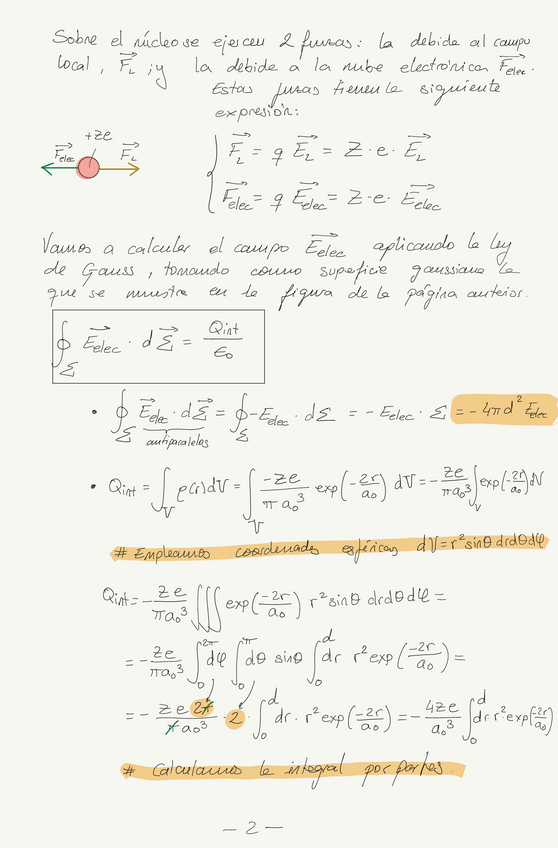 Sobre el núcleo se ejercen 2 fuerzas: la debida al campo
local, F⃗_L, y la debida a la nube electrónica F⃗elec.
Estas fuerzas tienen la siguiente
expresión:
+ze
F⃗elec F⃗_L
F⃗_L = q E⃗_L = Z · e · E⃗_L
F⃗elec = q E⃗elec = Z · e · E⃗elec
Vamos a calcular el campo E⃗elec aplicando la ley
de Gauss, tomando como superficie gaussiana la
que se muestra en la figura de la página anterior.
∮_Σ E⃗elec · dΣ⃗ = Qint/ε₀
• ∮_Σ E⃗elec · dΣ⃗ = ∮_Σ -Eelec · dΣ = -Eelec · Σ = -4πd² Eelec
antiparalelos
• Qint = ∫_V ρ(r)dV = ∫_V -ze/πa₀³ exp(-2r/a₀) dV = -ze/πa₀³ ∫_V exp(-2r/a₀)dV
# Empleamos coordenadas esféricas dV = r² sinθ drdθdφ
Qint = -ze/πa₀³ ∭ exp(-2r/a₀) r² sinθ drdθdφ =
= -ze/πa₀³ ∫₀^2π dφ ∫₀^π dθ sinθ ∫₀^d dr r² exp(-2r/a₀) =
= - ze 2π/πa₀³ · 2 · ∫₀^d dr · r² exp(-2r/a₀) = -4ze/a₀³ ∫₀^d dr r² exp(-2r/a₀)
# Calculamos la integral por partes.
- 2 -